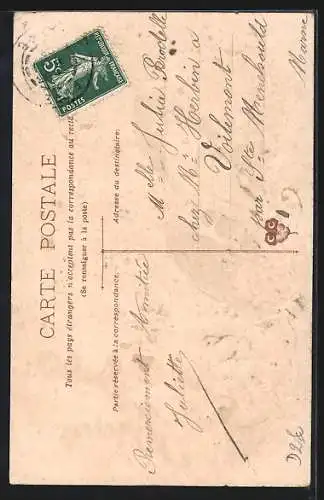 CARTE POSTALE
Tous les pays étrangers n'acceptent pas la correspondance au recto
(Se renseigner à la poste)
Partie réservée à la correspondance.
Adresse du destinataire:
Remerciement Amitiée
Juliette
Melle Julia
chez Mr Herbin a
Voilemont
par Ste Menehould
Marne
RÉPUBLIQUE FRANÇAISE
5c
POSTES
D2k